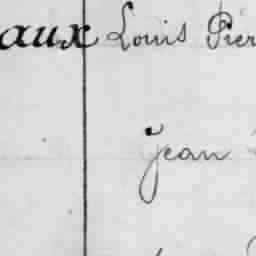 aux Louis Pier
Jean